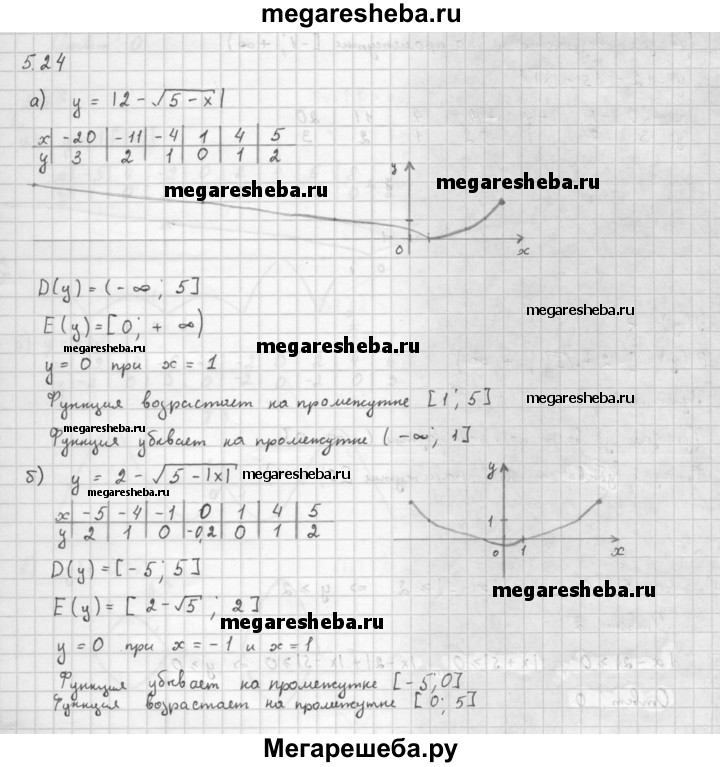 megaresheba.ru
5.24
а) y = |2 - √5 - x|
x -20 -11 -4 1 4 5
y 3 2 1 0 1 2
megaresheba.ru
megaresheba.ru
y
0 x
D(y) = (-∞; 5]
megaresheba.ru
E(y) = [0; +∞)
megaresheba.ru
megaresheba.ru
y = 0 при x = 1
Функция возрастает на промежутке [1; 5]
megaresheba.ru
megaresheba.ru
Функция убывает на промежутке (-∞; 1]
б) y = 2 - √5 - |x|
megaresheba.ru
megaresheba.ru
x -5 -4 -1 0 1 4 5
y 2 1 0 -0,2 0 1 2
y
1
0 1 x
D(y) = [-5; 5]
megaresheba.ru
E(y) = [2 - √5; 2]
megaresheba.ru
y = 0 при x = -1 и x = 1
Функция убывает на промежутке [-5; 0]
Функция возрастает на промежутке [0; 5]
Мегарешеба.ру